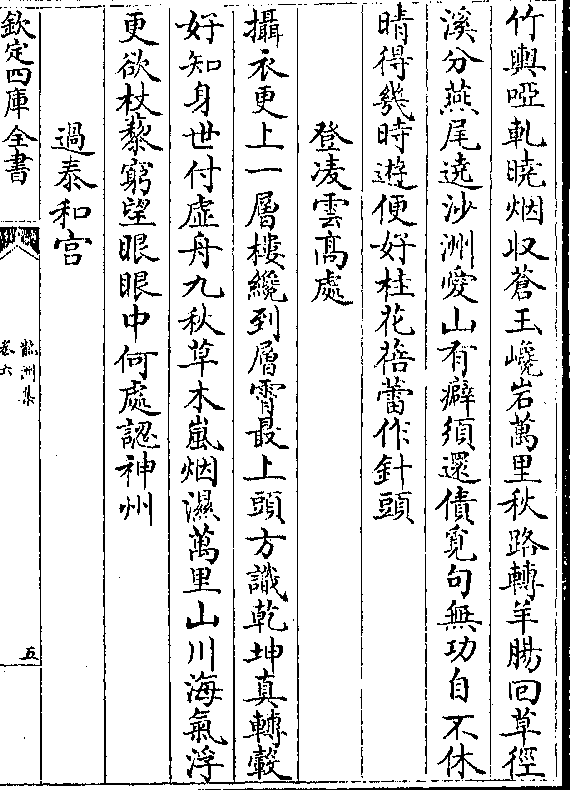 竹輿啞軋曉烟収蒼玉巉岩萬里秋路轉羊腸回草徑
溪分燕尾遶沙洲愛山有癖須還債覓句無功自不休
晴得幾時遊便好桂花蓓蕾作針頭
登凌雲高處
攝衣更上一層樓纔到層霄最上頭方識乾坤真轉轂
好知身世付虛舟九秋草木嵐烟濕萬里山川海氣浮
更欲杖藜窮望眼眼中何處認神州
過泰和宫
欽定四庫全書
龍洲集
卷六
五